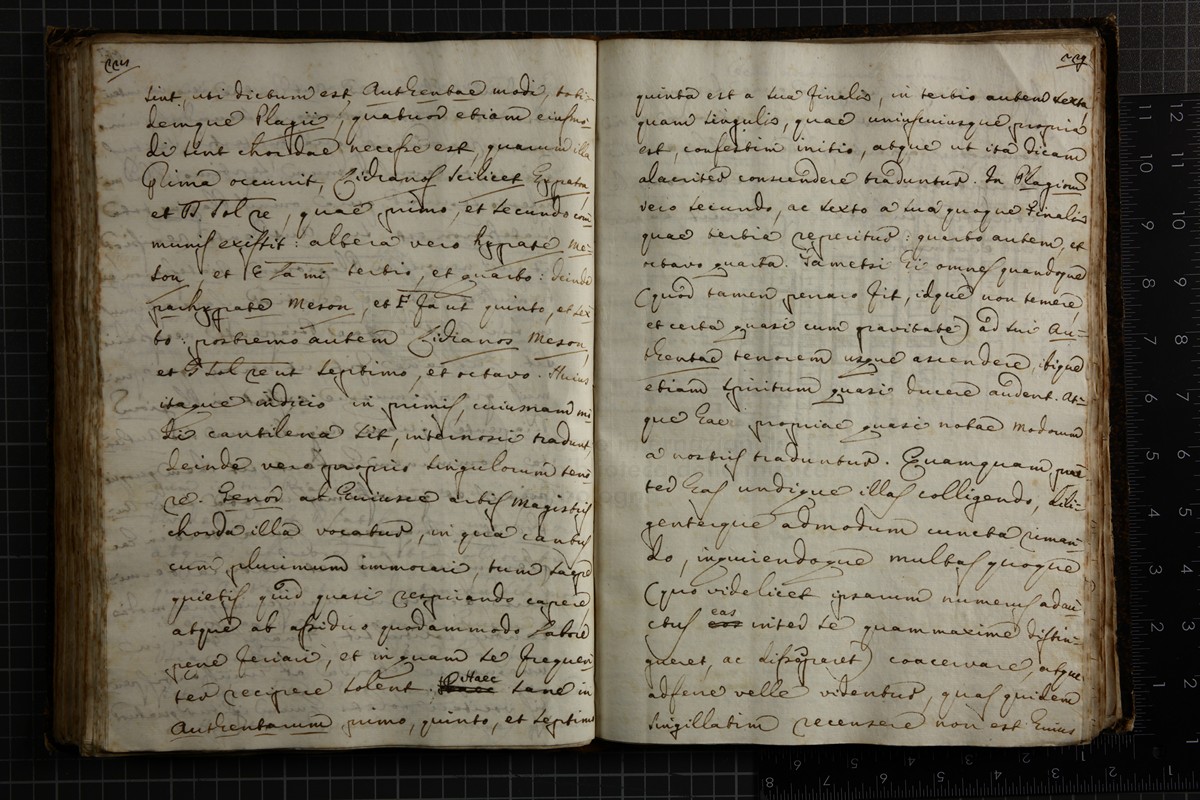 sint, uti dictum est, Authentae modi, toti-
demque Plagii; quatuor etiam eiusmo-
di sint chordae necesse est, quarum illa
Prima occurrit, Lichanos scilicet Hypaton,
et D sol re, quae primo, et secundo com
munis existit: altera vero hypate me-
son, et E la mi tertio, et quarto: deinde
parhypate meson, et F fa ut quinto, et sex
to: postremo autem Lichanos Meson,
et G sol re ut septimo, et octavo. Huius
itaque indicio in primis, cuiusnam mo
di cantilena sit, internosci tradunt,
deinde vero proprio singulorum teno
re. Tenor ab huiusce artis magistris
chorda illa vocatur, in qua cantus
cum plurimum immorari, tum saepe
quietis quid quasi respirando capere,
atque ab assiduo quodammodo labore
pene feriari, et in quam se frequen
ter recipere solent. Haec sane in
Authentarum primo, quinto, et septimo
quinta est a sua finalis, in tertio autem sexta,
quam singulis, quae uniuscuiusque propria
est, confestim initio, atque ut ita dicam
alacriter conscendere traduntur. In Plagiorum
vero secundo, ac sexto a sua quoque Finalis
quae tertia reperitur: quarto autem, et
octavo quarta. Tametsi hi omnes quandoque
(quod tamen perraro fit, idque non temere,
et certa quasi cum gravitate) ad sui Au-
thentae tenorem usque ascendere, ibique
etiam spiritum quasi ducere audent. At-
que hae propriae quasi notae Modorum
a nostris traduntur. Quamquam prae
ter has undique illas colligendo, dili-
genterque admodum cuncta riman-
do, inquiendoque multas quoque
(quo videlicet ipsarum numerus adau
ctus eas inter se quammaxime distin-
gueret, ac dispararet) coacervare, atque
adferre velle videntur, quas quidem
singillatim recensere non est huius